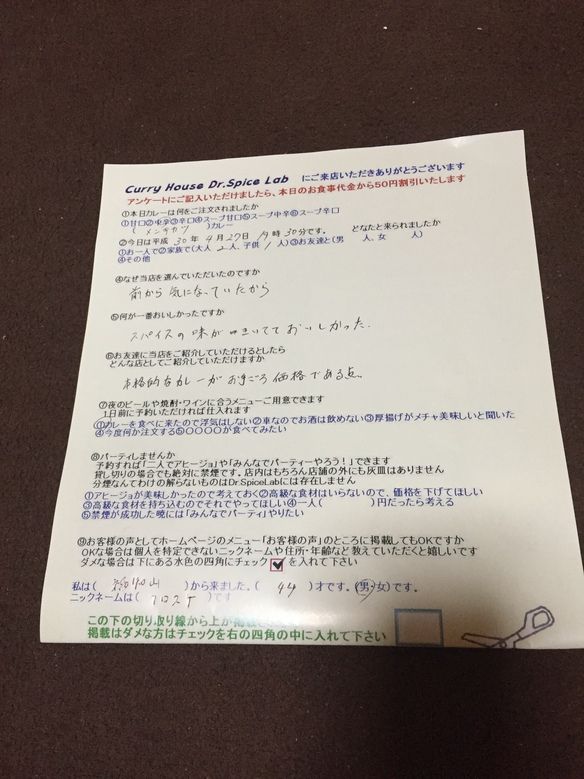 Curry House Dr.Spice Lab にご来店いただきありがとうございます
アンケートにご記入いただけましたら、本日のお食事代金から50円割引いたします
①本日カレーは何をご注文されましたか
①甘口②中辛③辛口④スープ甘口⑤スープ中辛⑥スープ辛口
( メンチカツ )カレー
②今日は平成 30年 4月27日 19時 30分です。 どなたと来られましたか
①お一人で②家族で(大人 2人、子供 1人)③お友達と(男 人、女 人)
④その他
④なぜ当店を選んでいただいたのですか
前から気になっていたから
⑤何が一番おいしかったですか
スパイスの味がきいてておいしかった。
⑥お友達に当店をご紹介していただけるとしたら
どんな店としてご紹介していただけますか
本格的なカレーがお手ごろ価格である点。
⑦夜のビールや焼酎・ワインに合うメニューご用意できます
1日前に予約いただければ仕入れます
①カレーを食べに来たので浮気はしない②車なのでお酒は飲めない③厚揚げがメチャ美味しいと聞いた
④今度何か注文する⑤〇〇〇〇が食べてみたい
⑧パーティしませんか
予約すれば「二人でアヒージョ」や「みんなでパーティーやろう!」できます
貸し切りの場合でも絶対に禁煙です。店内はもちろん店舗の外にも灰皿はありません
分煙なんてわけの解らないものはDr.SpiceLabには存在しません
①アヒージョが美味しかったので考えておく②高級な食材はいらないので、価格を下げてほしい
③高級な食材を持ち込むのでそれでやってほしい④一人( )円だったら考える
⑤禁煙が成功した暁には「みんなでパーティ」やりたい
⑨お客様の声としてホームページのメニュー「お客様の声」のところに掲載してもOKですか
OKな場合は個人を特定できないニックネームや住所・年齢など教えていただくと嬉しいです
ダメな場合は下にある水色の四角にチェック を入れて下さい
私は( 和歌山 )から来ました。( 44 )才です。(男・女)です。
ニックネームは( )です
この下の切り取り線から上が掲載
掲載はダメな方はチェックを右の四角の中に入れて下さい